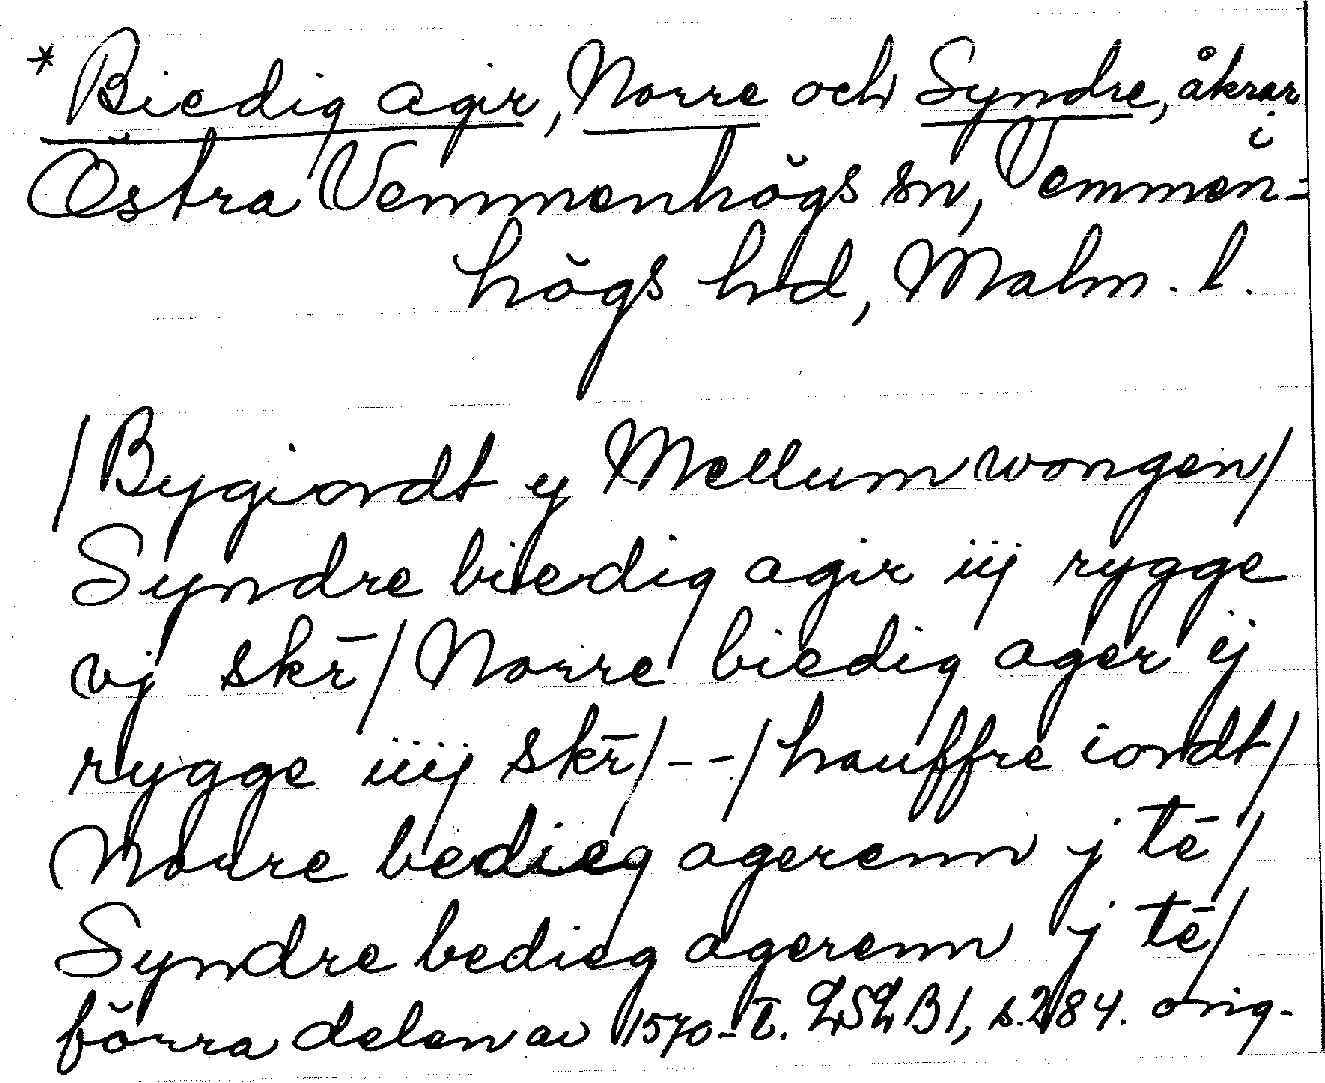 * Biedig agir, Norre och Syndre, åkrar i
Östra Vemmenhögs sn, Vemmen-
högs hd, Malm. l.
/Bygiordt y Mellum wongen/
Syndre biedig agir iij rygge
vj skr̄/ Norre biedig ager ij
rygge iiij skr̄/--/hauffre iordt/
Norre bedieg agerenn j tē/
Syndre bedieg agerenn j tē/
förra delen av 1570-t. LSLB1, s. 284. orig.